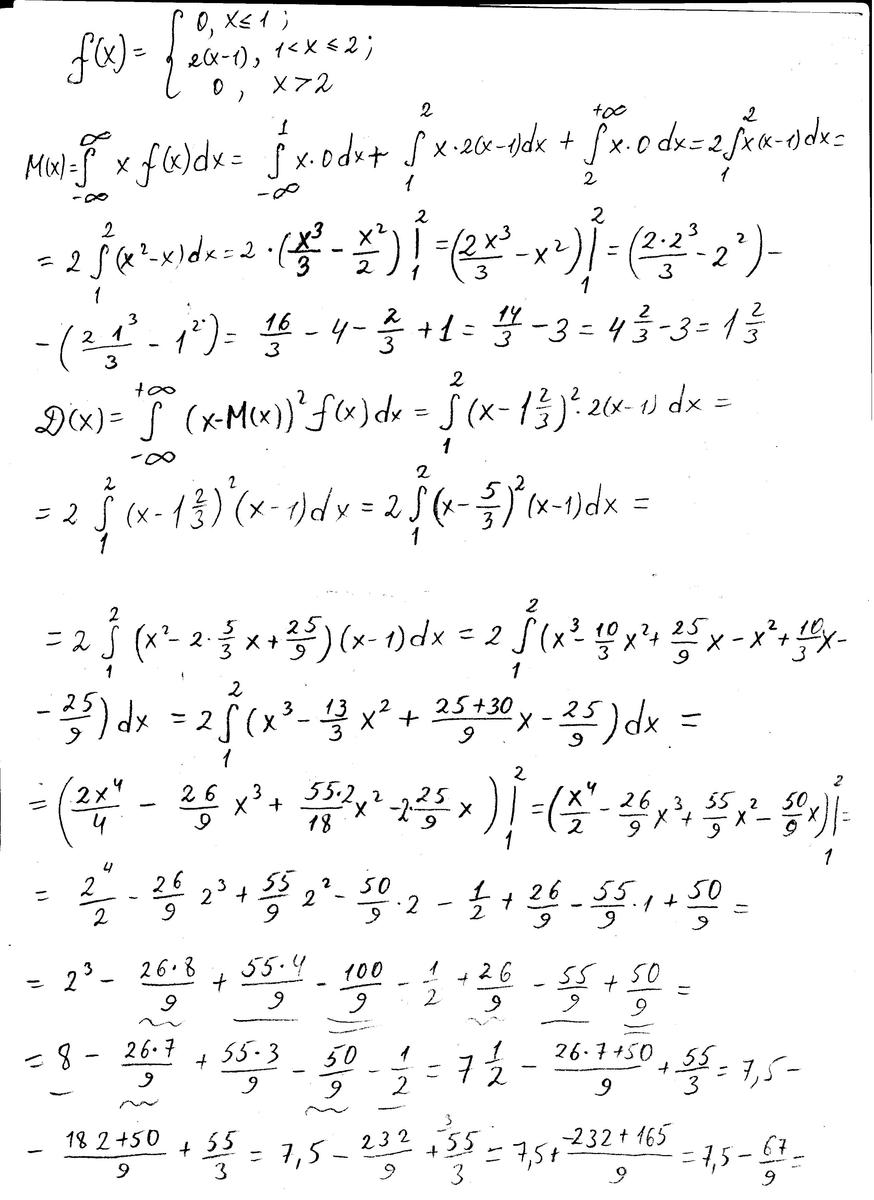 f(x) = { 0, x ≤ 1 ;
2(x-1), 1 < x ≤ 2 ;
0 , x > 2
M(x) = ∫_{-∞}^{∞} x f(x) dx = ∫_{-∞}^{1} x · 0 dx + ∫_{1}^{2} x · 2(x-1) dx + ∫_{2}^{+∞} x · 0 dx = 2 ∫_{1}^{2} x(x-1) dx =
= 2 ∫_{1}^{2} (x² - x) dx = 2 · (x³/3 - x²/2) |_{1}^{2} = (2x³/3 - x²) |_{1}^{2} = (2·2³/3 - 2²) -
- (2 1³/3 - 1²) = 16/3 - 4 - 2/3 + 1 = 14/3 - 3 = 4 2/3 - 3 = 1 2/3
D(x) = ∫_{-∞}^{+∞} (x-M(x))² f(x) dx = ∫_{1}^{2} (x - 1 2/3)² · 2(x-1) dx =
= 2 ∫_{1}^{2} (x - 1 2/3)² (x-1) dx = 2 ∫_{1}^{2} (x - 5/3)² (x-1) dx =
= 2 ∫_{1}^{2} (x² - 2 · 5/3 x + 25/9) (x-1) dx = 2 ∫_{1}^{2} (x³ - 10/3 x² + 25/9 x - x² + 10/3 x -
- 25/9) dx = 2 ∫_{1}^{2} (x³ - 13/3 x² + 25+30/9 x - 25/9) dx =
= (2x⁴/4 - 26/9 x³ + 55·2/18 x² - 2·25/9 x) |_{1}^{2} = (x⁴/2 - 26/9 x³ + 55/9 x² - 50/9 x) |_{1}^{2} =
= 2⁴/2 - 26/9 2³ + 55/9 2² - 50/9 · 2 - 1/2 + 26/9 - 55/9 · 1 + 50/9 =
= 2³ - 26·8/9 + 55·4/9 - 100/9 - 1/2 + 26/9 - 55/9 + 50/9 =
= 8 - 26·7/9 + 55·3/9 - 50/9 - 1/2 = 7 1/2 - 26·7+50/9 + 55/3 = 7,5 -
- 182+50/9 + 55/3 = 7,5 - 232/9 + ³55/3 = 7,5 + -232+165/9 = 7,5 - 67/9 =